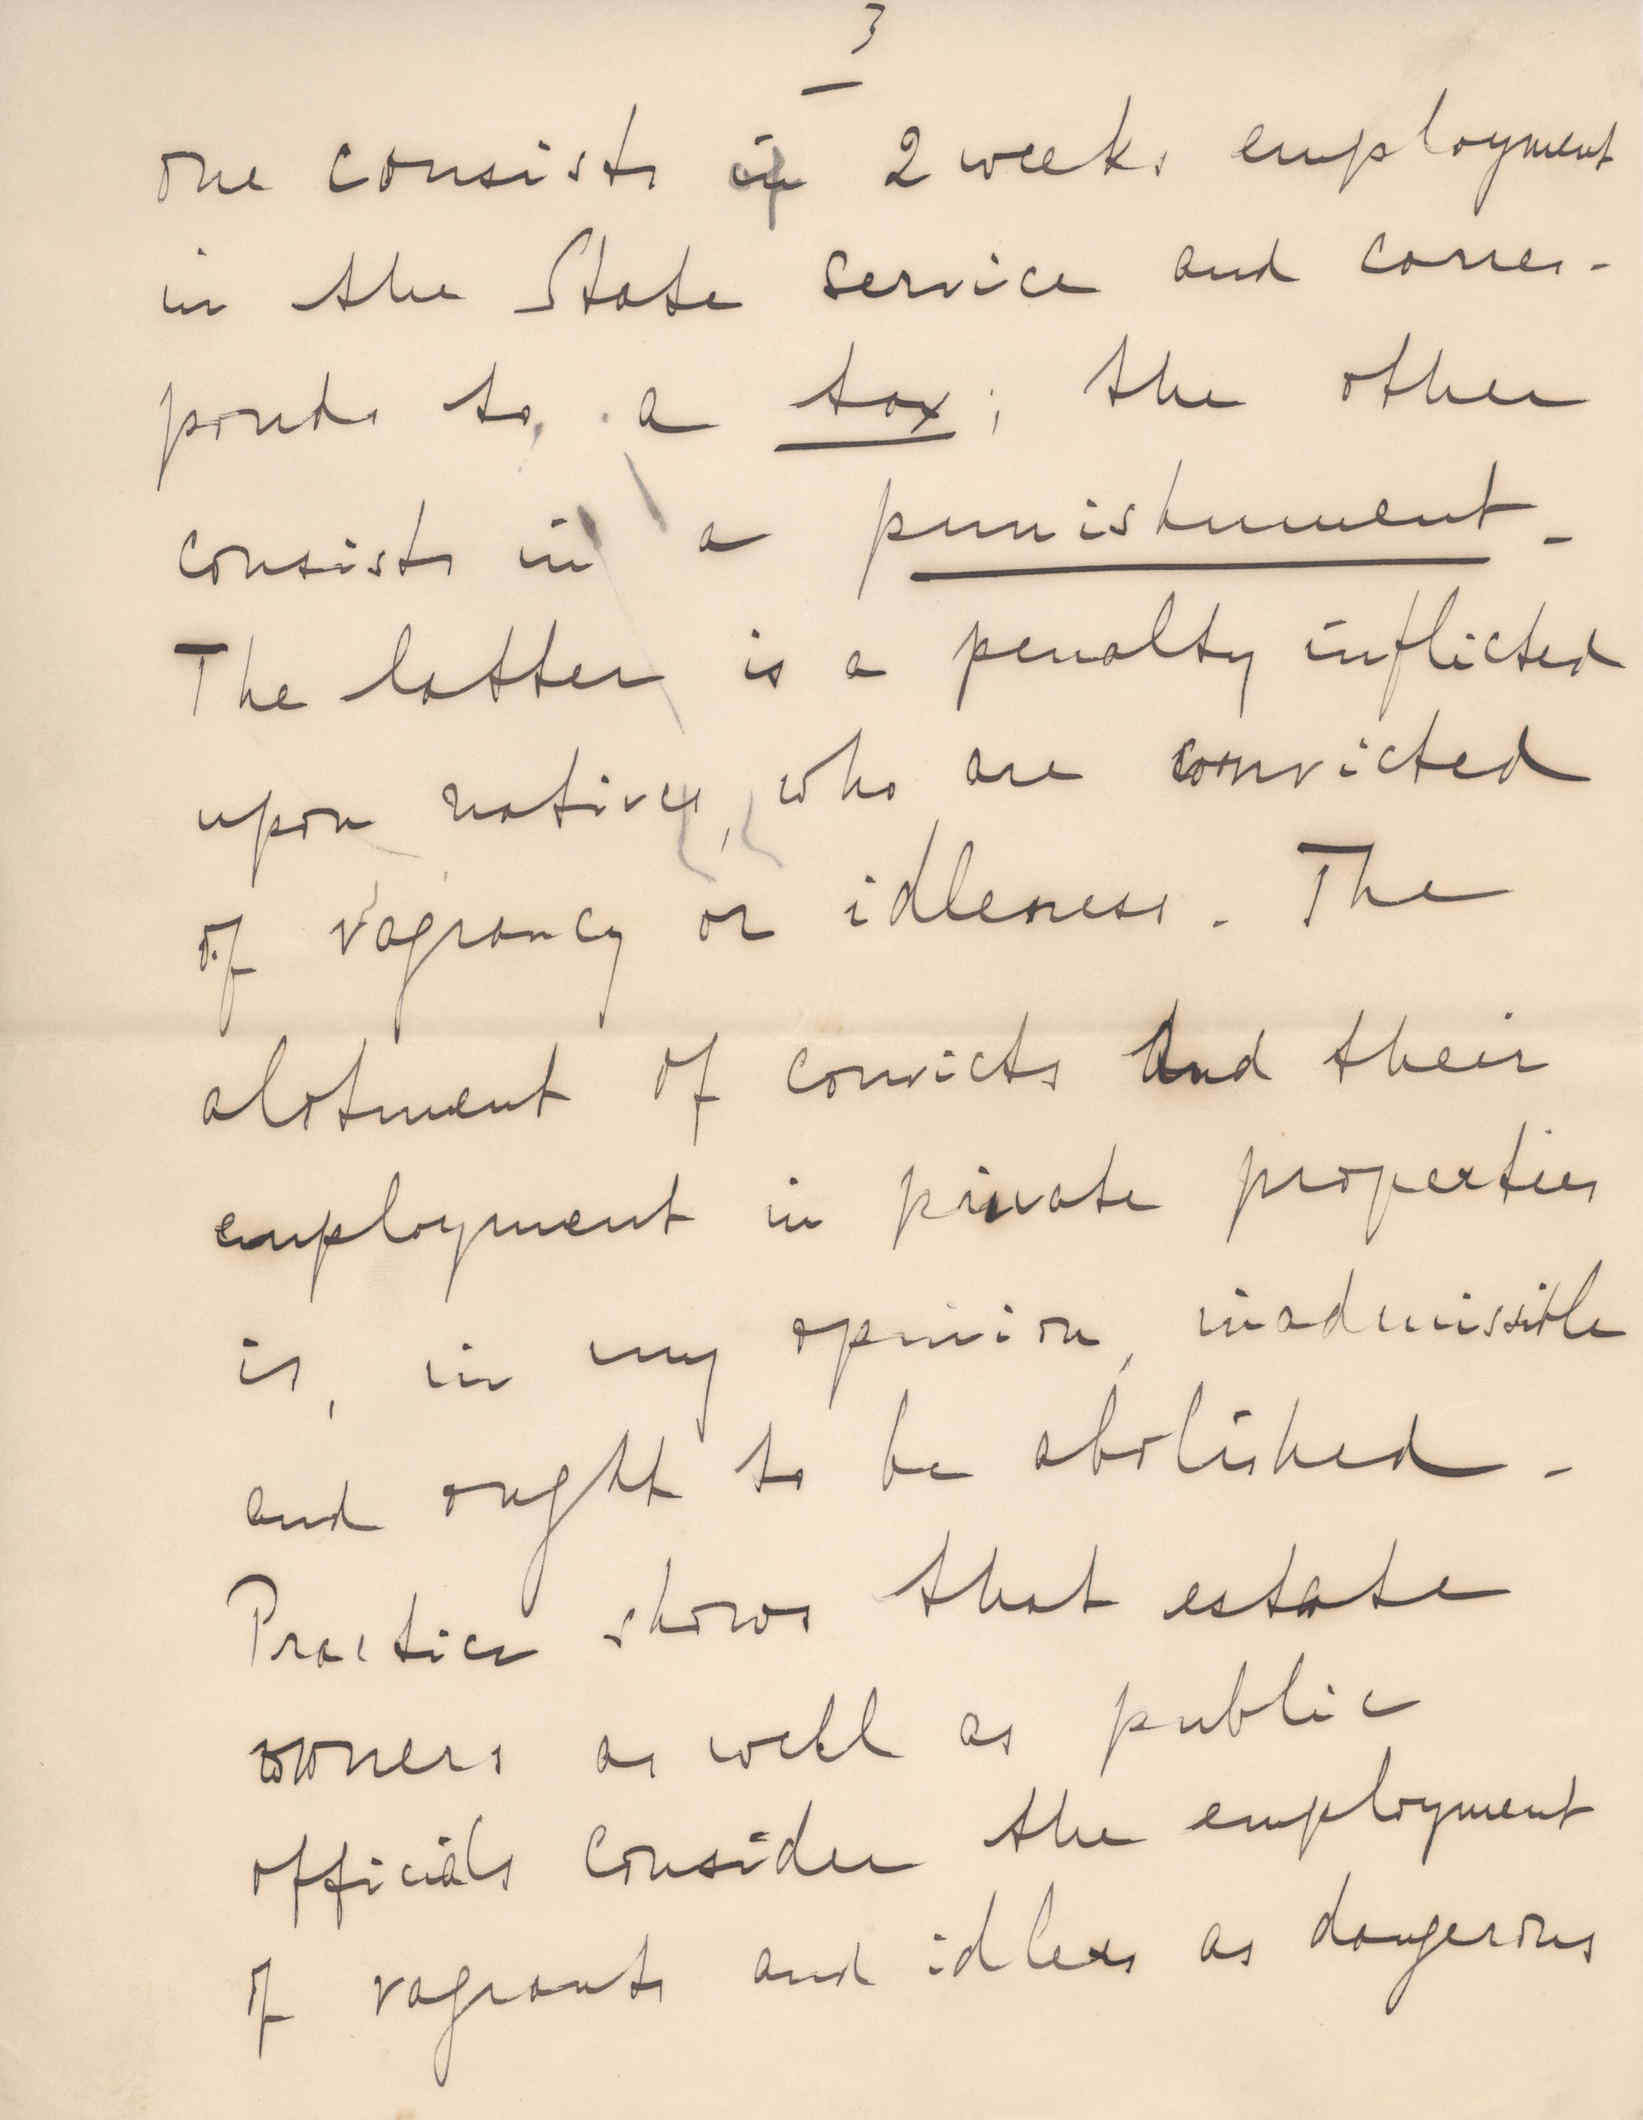 3
one consists in 2 weeks employment
in the State service and corres-
ponds to a tax; the other
consists in a punishment.
The latter is a penalty inflicted
upon natives, who are convicted
of vagrancy or idleness. The
alotment of convicts and their
employment in private properties
is, in my opinion, inadmissible
and ought to be abolished.
Practice shows that estate
owners as well as public
officials consider the employment
of vagrants and idlers as dangerous